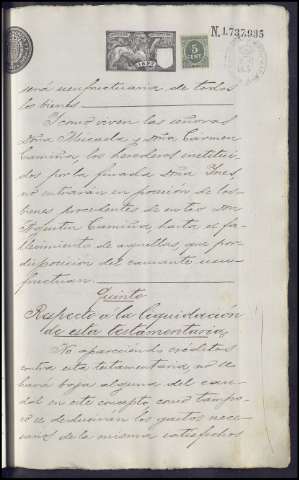 N. 1.737.935
5
será usufructuaria de todos
los bienes
Como viven las señoras
Doña Micaela y Doña Carmen
Camiña, los herederos instituí-
dos por la finada Doña Ines
no entrarán en posesión de los
bienes procedentes de Don
Agustin Camiña, hasta el fa-
llecimiento de aquellas, que por
disposición del causante usu-
fructuan.
Quinto
Respecto a la liquidación
de esta testamentaria,
No apareciendo créditos
contra esta testamentaria, no se
hará baja alguna del cau-
dal en este concepto, como tampo-
co se deducirán los gastos nece-
sarios de la misma satisfechos